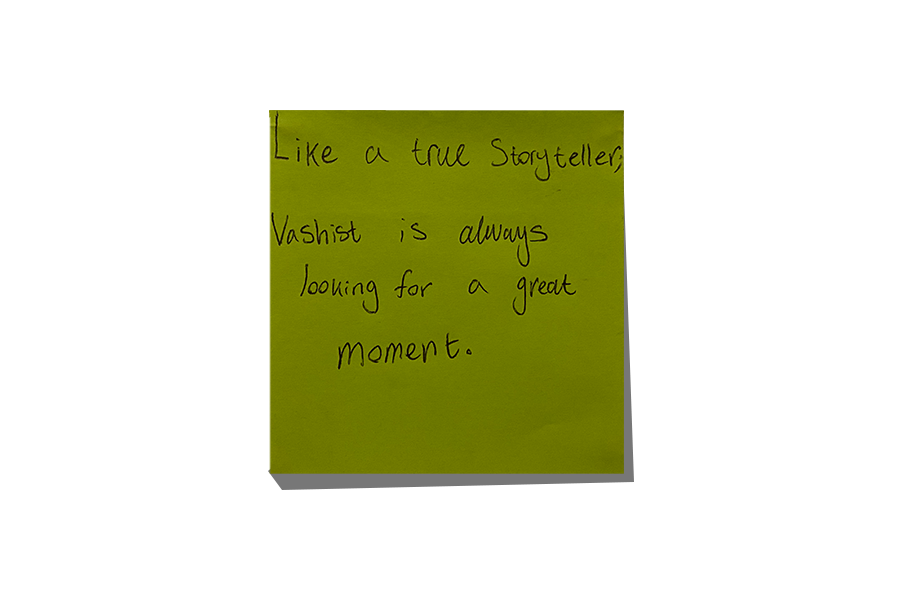 Like a true Storyteller;
Vashist is always
looking for a great
moment.